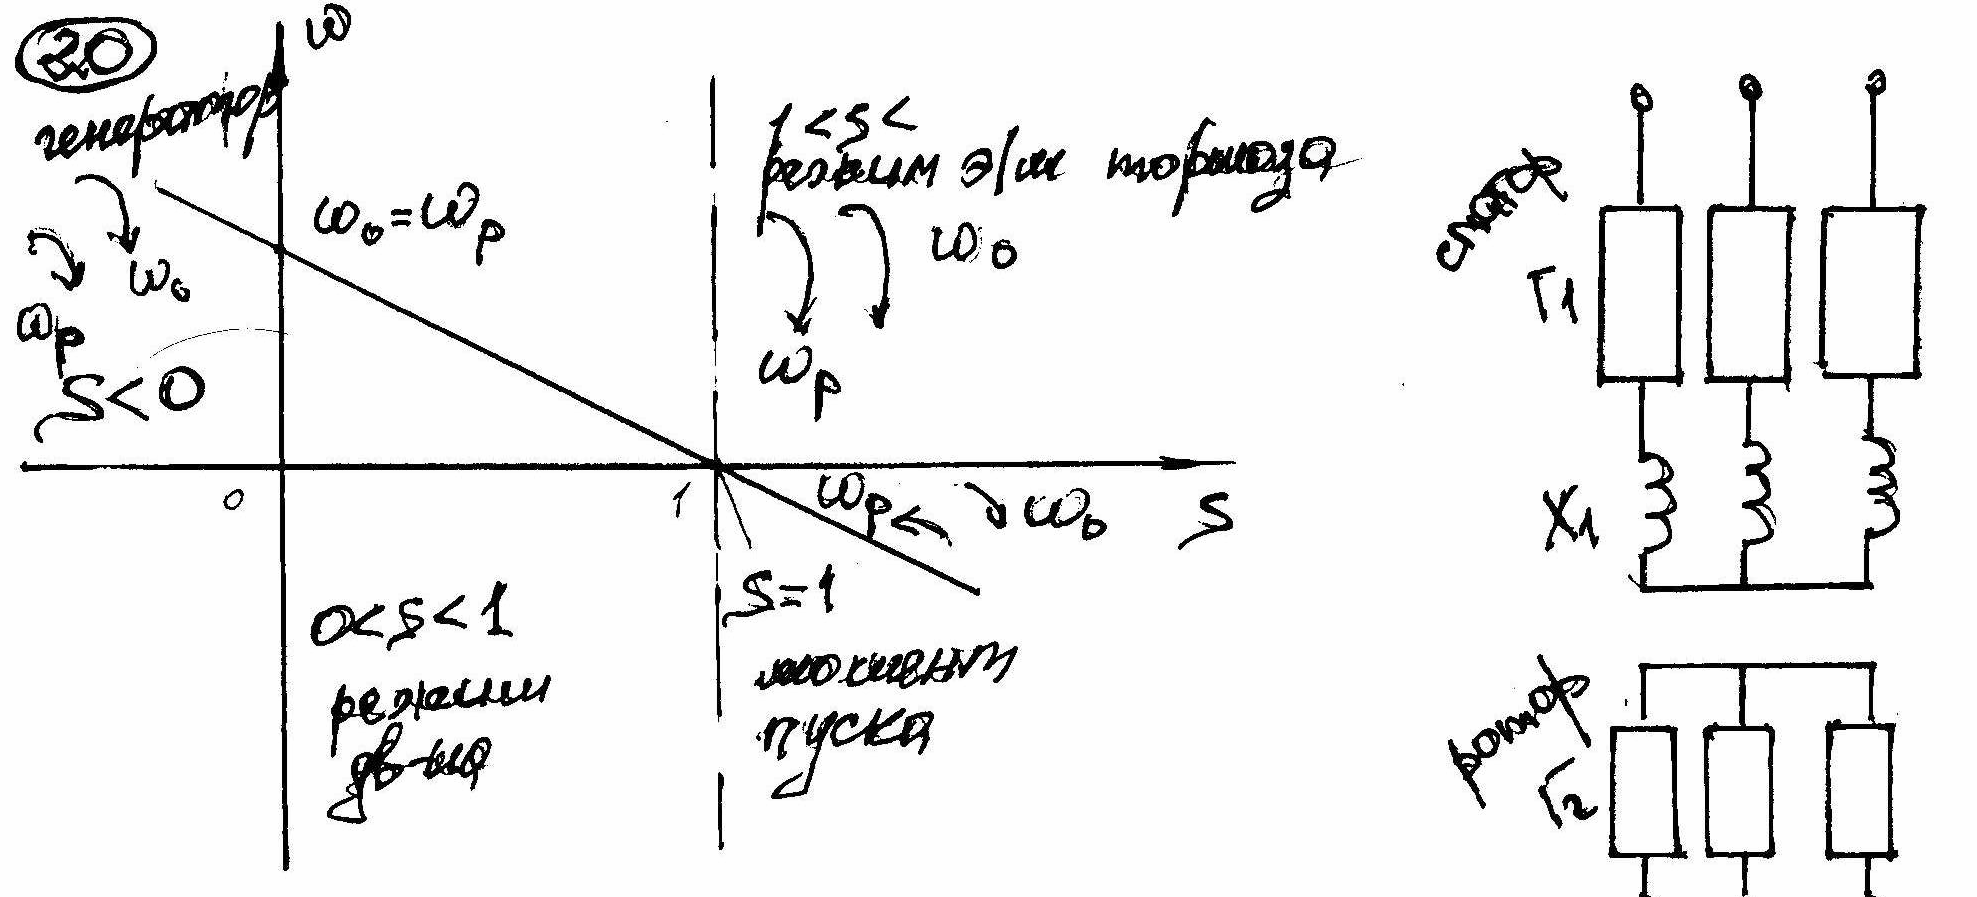 20
ω
генератор
ω₀
ωр
S<0
ω₀=ωр
1<S<
режим э/м тормоза
ω₀
ωр
0
1
ωр
ω₀
S
0<S<1
режим
дв-ля
S=1
момент
пуска
статор
r₁
x₁
ротор
r₂